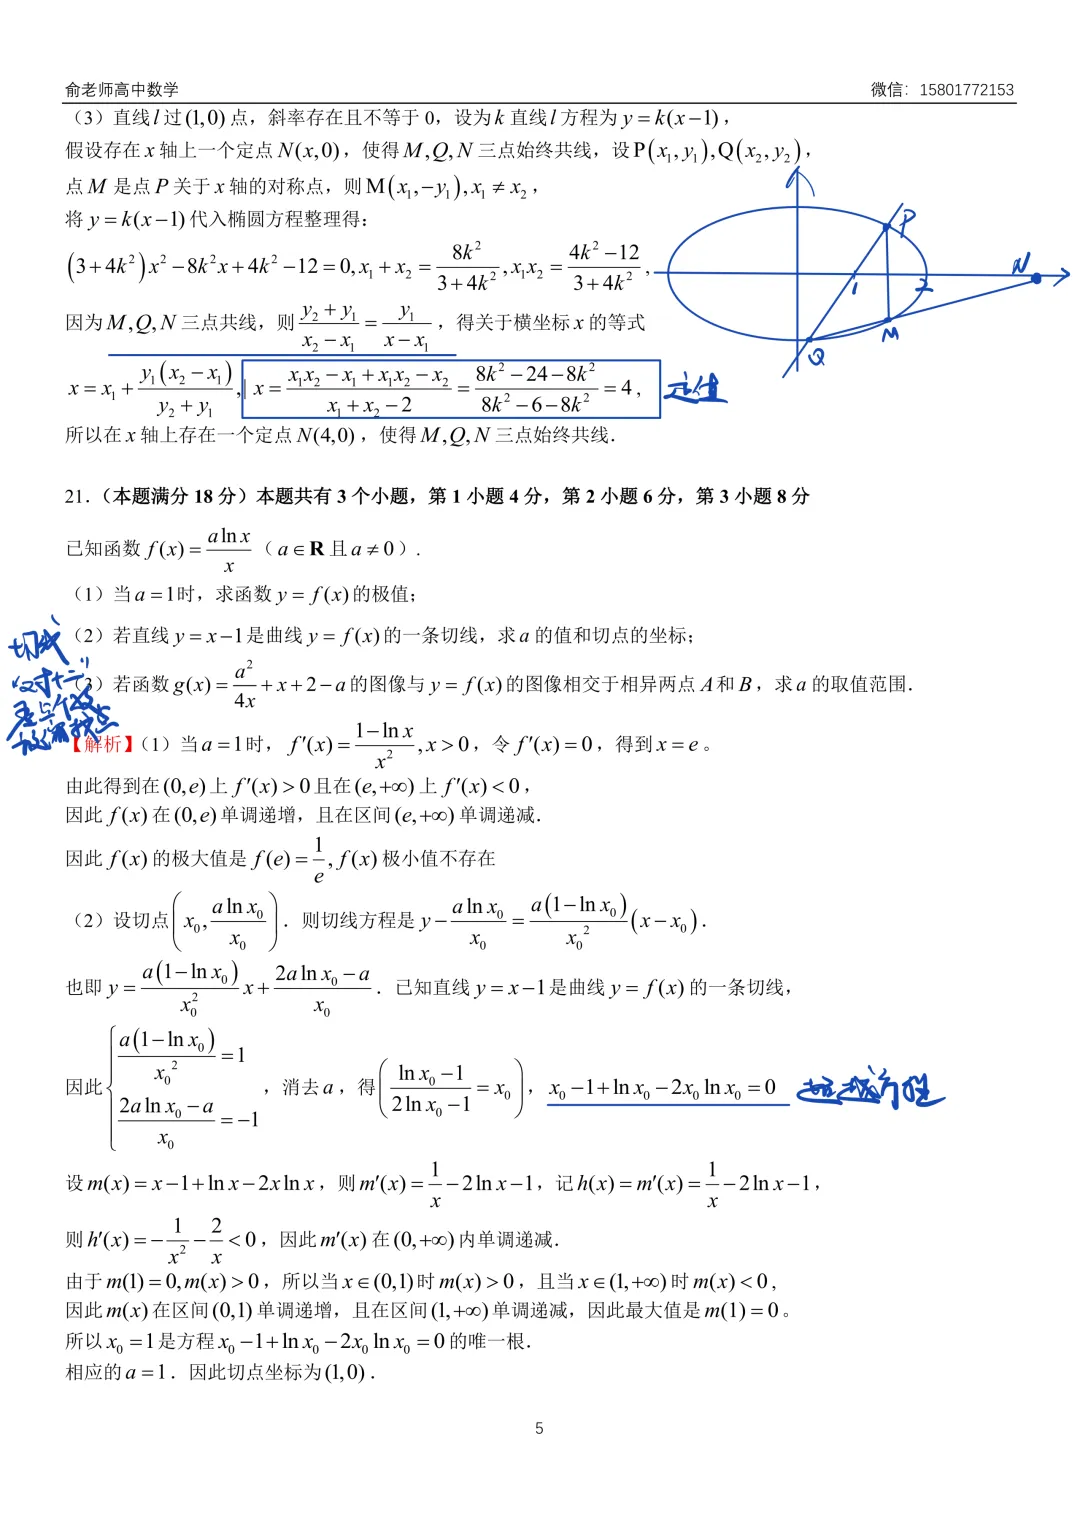 俞老师高中数学 微信：15801772153
（3）直线l过(1,0)点，斜率存在且不等于0，设为k直线l方程为y=k(x−1)，
假设存在x轴上一个定点N(x,0)，使得M,Q,N三点始终共线，设P(x₁,y₁),Q(x₂,y₂)，
点M是点P关于x轴的对称点，则M(x₁,−y₁),x₁≠x₂，
将y=k(x−1)代入椭圆方程整理得：
(3+4k²)x²−8k²x+4k²−12=0,x₁+x₂=8k²/(3+4k²),x₁x₂=(4k²−12)/(3+4k²)，
因为M,Q,N三点共线，则(y₂+y₁)/(x₂−x₁)=y₁/(x−x₁)，得关于横坐标x的等式
x=x₁+y₁(x₂−x₁)/(y₂+y₁),x=(x₁x₂−x₁+x₁x₂−x₂)/(x₁+x₂−2)=(8k²−24−8k²)/(8k²−6−8k²)=4， 定值
所以在x轴上存在一个定点N(4,0)，使得M,Q,N三点始终共线．
P
N
1
2
M
Q
21．（本题满分18分）本题共有3个小题，第1小题4分，第2小题6分，第3小题8分
已知函数f(x)=alnx/x（a∈R且a≠0）.
（1）当a=1时，求函数y=f(x)的极值；
（2）若直线y=x−1是曲线y=f(x)的一条切线，求a的值和切点的坐标；
（3）若函数g(x)=a²/4x+x+2−a的图像与y=f(x)的图像相交于相异两点A和B，求a的取值范围．
切线
【解析】（1）当a=1时，f′(x)=(1−lnx)/x²,x>0，令f′(x)=0，得到x=e。
由此得到在(0,e)上f′(x)>0且在(e,+∞)上f′(x)<0，
因此f(x)在(0,e)单调递增，且在区间(e,+∞)单调递减．
因此f(x)的极大值是f(e)=1/e,f(x)极小值不存在
（2）设切点(x₀,alnx₀/x₀)．则切线方程是y−alnx₀/x₀=a(1−lnx₀)/x₀²(x−x₀)．
也即y=a(1−lnx₀)/x₀² x+(2alnx₀−a)/x₀．已知直线y=x−1是曲线y=f(x)的一条切线，
因此{a(1−lnx₀)/x₀²=1 (2alnx₀−a)/x₀=−1，消去a，得((lnx₀−1)/(2lnx₀−1)=x₀)，x₀−1+lnx₀−2x₀lnx₀=0 超越方程
设m(x)=x−1+lnx−2xlnx，则m′(x)=1/x−2lnx−1，记h(x)=m′(x)=1/x−2lnx−1，
则h′(x)=−1/x²−2/x<0，因此m′(x)在(0,+∞)内单调递减．
由于m(1)=0,m(x)>0，所以当x∈(0,1)时m(x)>0，且当x∈(1,+∞)时m(x)<0，
因此m(x)在区间(0,1)单调递增，且在区间(1,+∞)单调递减，因此最大值是m(1)=0。
所以x₀=1是方程x₀−1+lnx₀−2x₀lnx₀=0的唯一根．
相应的a=1．因此切点坐标为(1,0)．
5